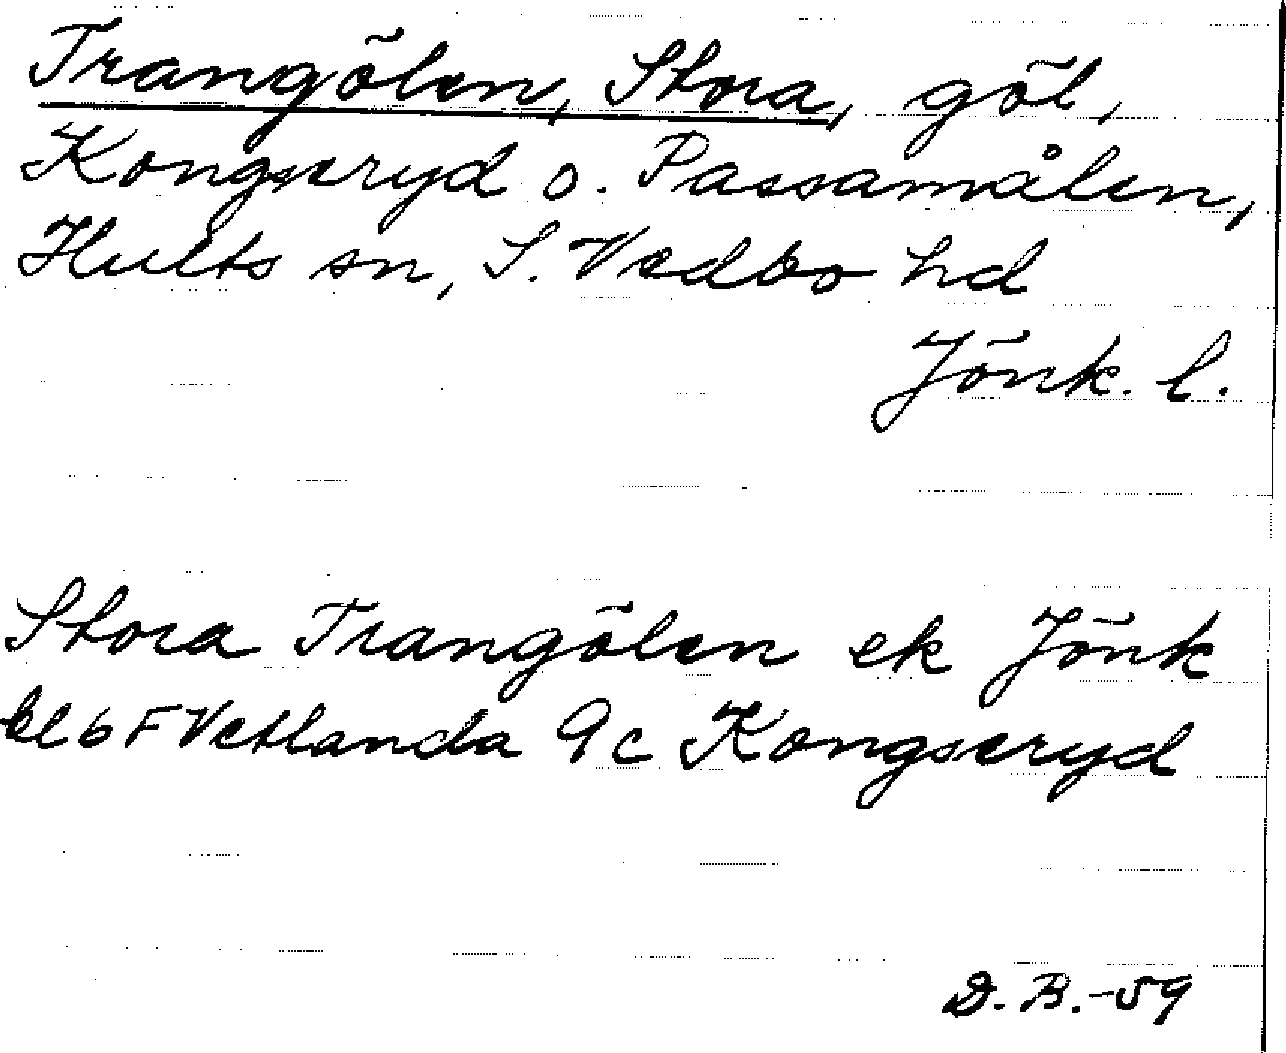 Trangölen, Stora, göl,
Kongseryd o. Passamålen,
Hults sn, S. Vedbo hd
Jönk. l.
Stora Trangölen ek Jönk
bl 6 F Vetlanda 9c Kongseryd
D. B. -59